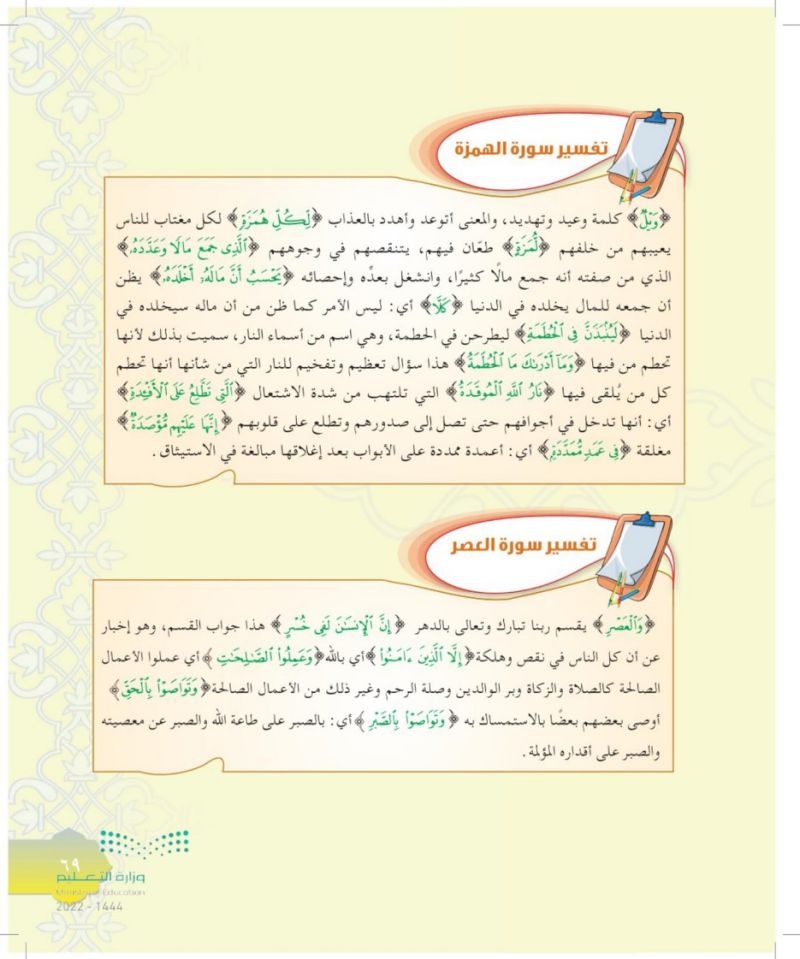 تفسير سورة الهمزة
﴿وَيْلٌ﴾ كلمة وعيد وتهديد، والمعنى أتوعد وأهدد بالعذاب ﴿لِّكُلِّ هُمَزَةٍ﴾ لكل مغتاب للناس
يعيبهم من خلفهم ﴿لُّمَزَةٍ﴾ طعّان فيهم، يتنقصهم في وجوههم ﴿ٱلَّذِى جَمَعَ مَالًا وَعَدَّدَهُۥ﴾
الذي من صفته أنه جمع مالًا كثيرًا، وانشغل بعدِّه وإحصائه ﴿يَحْسَبُ أَنَّ مَالَهُۥٓ أَخْلَدَهُۥ﴾ يظن
أن جمعه للمال يخلده في الدنيا ﴿كَلَّا﴾ أي: ليس الأمر كما ظن من أن ماله سيخلده في
الدنيا ﴿لَيُنۢبَذَنَّ فِى ٱلْحُطَمَةِ﴾ ليطرحن في الحطمة، وهي اسم من أسماء النار، سميت بذلك لأنها
تحطم من فيها ﴿وَمَآ أَدْرَىٰكَ مَا ٱلْحُطَمَةُ﴾ هذا سؤال تعظيم وتفخيم للنار التي من شأنها أنها تحطم
كل من يُلقى فيها ﴿نَارُ ٱللَّهِ ٱلْمُوقَدَةُ﴾ التي تلتهب من شدة الاشتعال ﴿ٱلَّتِى تَطَّلِعُ عَلَى ٱلْأَفْـِٔدَةِ﴾
أي: أنها تدخل في أجوافهم حتى تصل إلى صدورهم وتطلع على قلوبهم ﴿إِنَّهَا عَلَيْهِم مُّؤْصَدَةٌ﴾
مغلقة ﴿فِى عَمَدٍ مُّمَدَّدَةٍۭ﴾ أي: أعمدة ممددة على الأبواب بعد إغلاقها مبالغة في الاستيثاق .
تفسير سورة العصر
﴿وَٱلْعَصْرِ﴾ يقسم ربنا تبارك وتعالى بالدهر ﴿إِنَّ ٱلْإِنسَٰنَ لَفِى خُسْرٍ﴾ هذا جواب القسم، وهو إخبار
عن أن كل الناس في نقص وهلكة ﴿إِلَّا ٱلَّذِينَ ءَامَنُوا۟﴾ أي بالله ﴿وَعَمِلُوا۟ ٱلصَّٰلِحَٰتِ﴾ أي عملوا الأعمال
الصالحة كالصلاة والزكاة وبر الوالدين وصلة الرحم وغير ذلك من الأعمال الصالحة ﴿وَتَوَاصَوْا۟ بِٱلْحَقِّ﴾
أوصى بعضهم بعضًا بالاستمساك به ﴿وَتَوَاصَوْا۟ بِٱلصَّبْرِ﴾ أي: بالصبر على طاعة الله والصبر عن معصيته
والصبر على أقداره المؤلمة .
٦٩
وزارة التعليم
Ministry of Education
2022 - 1444